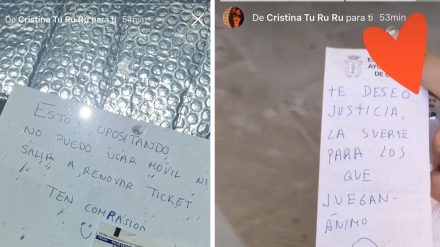 De Cristina Tu Ru Ru para ti 54min
ESTOY OPOSITANDO.
NO PUEDO USAR MÓVIL NI
SALIR A RENOVAR TICKET
TEN COMPASIÓN
De Cristina Tu Ru Ru para ti 53min
TE DESEO
JUSTICIA,
LA SUERTE
PARA LOS
QUE
JUEGAN-
ÁNIMO